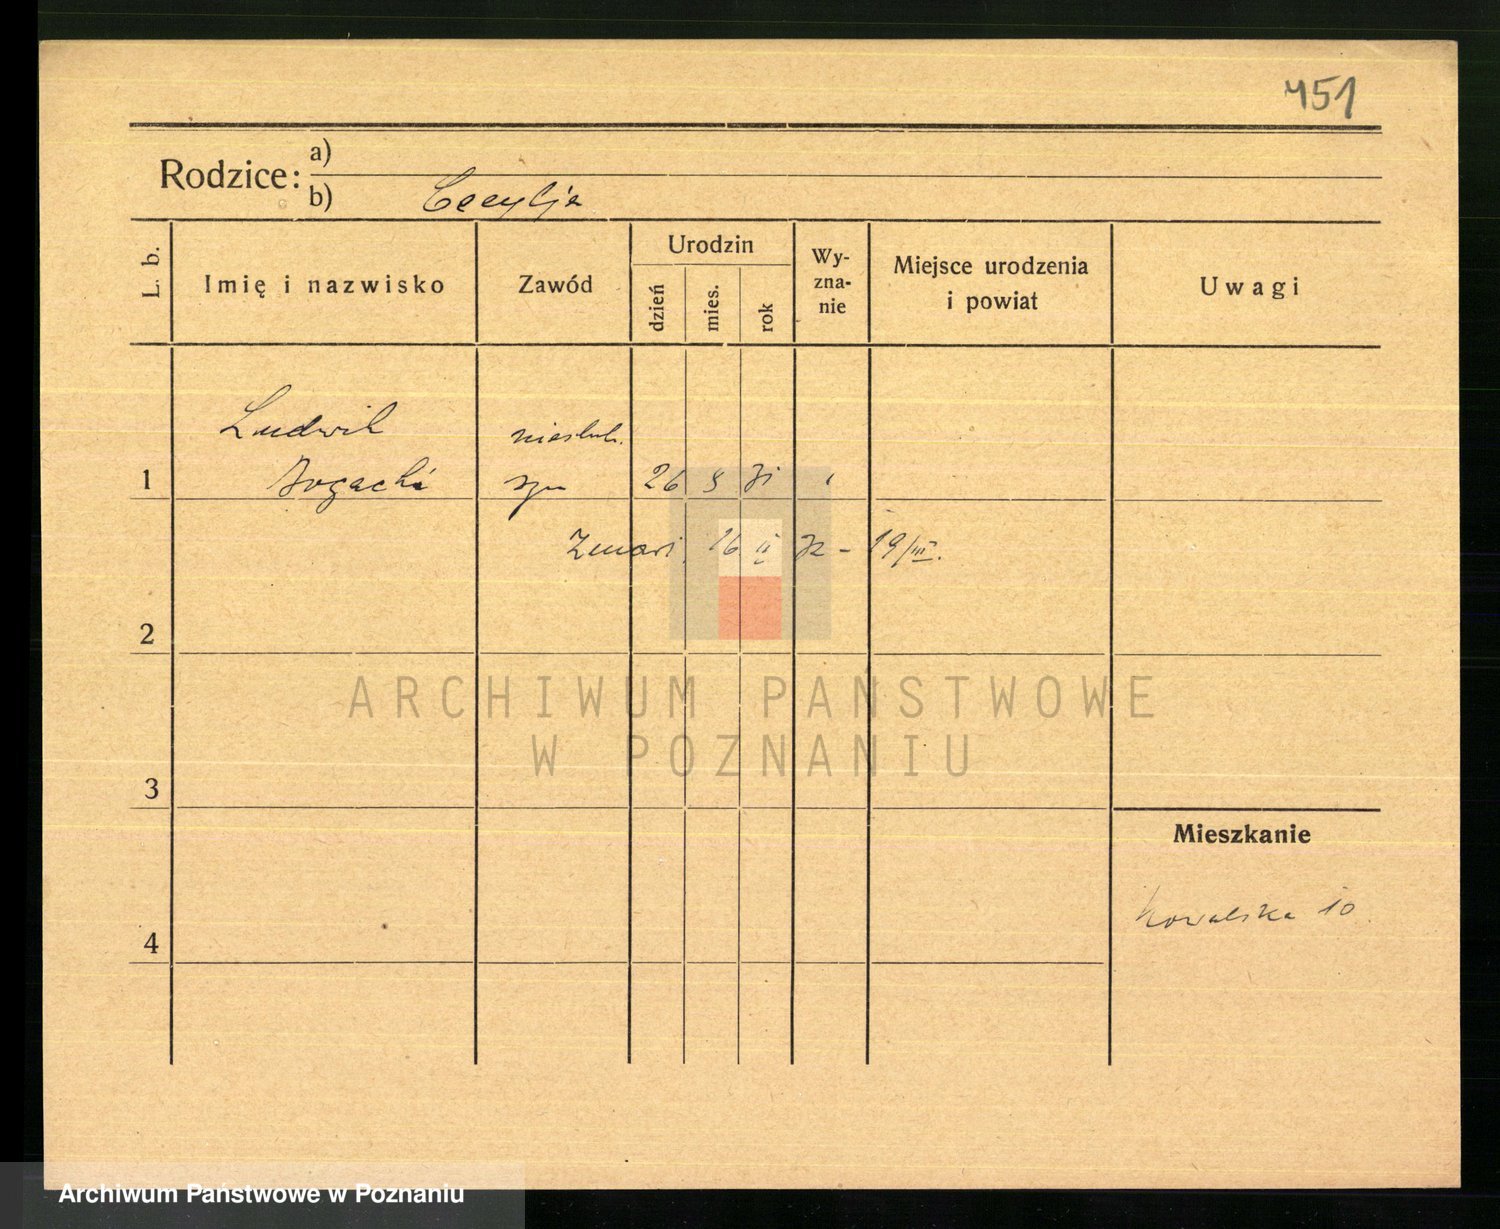 451
Rodzice:
a)
b) Cecylja
L. b.
Imię i nazwisko
Zawód
Urodzin
dzień
mies.
rok
Wy-
zna-
nie
Miejsce urodzenia
i powiat
Uwagi
Ludwik
nieślub.
1 Bogacki syn 26 8 31
Zmarł 16 II 32 - 19/III.
2
ARCHIWUM PAŃSTWOWE
W POZNANIU
3
Mieszkanie
Kowalska 10
4
Archiwum Państwowe w Poznaniu